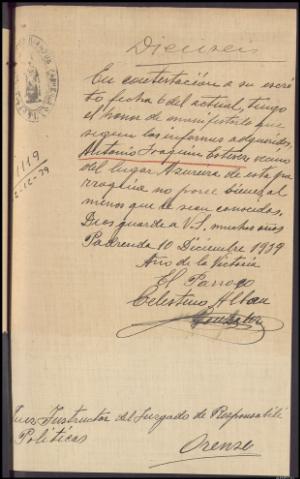 Dieziseis
En contestación a su escri-
to fecha 6 del actual, tengo
el honor de manifestarle que
segun los informes adquiridos,
Antonio Joaquin Estevez vecino
del lugar de esta pa-
rroquia no posee bienes, al
menos que le sean conocidos.
Dios guarde a V.S. muchos años
Padrenda 10 Diciembre 1939
Año de la Victoria
El Parroco
Celestino
1119
2-12-39
Juez Instructor del Juzgado de Responsabili
Políticas
Orense